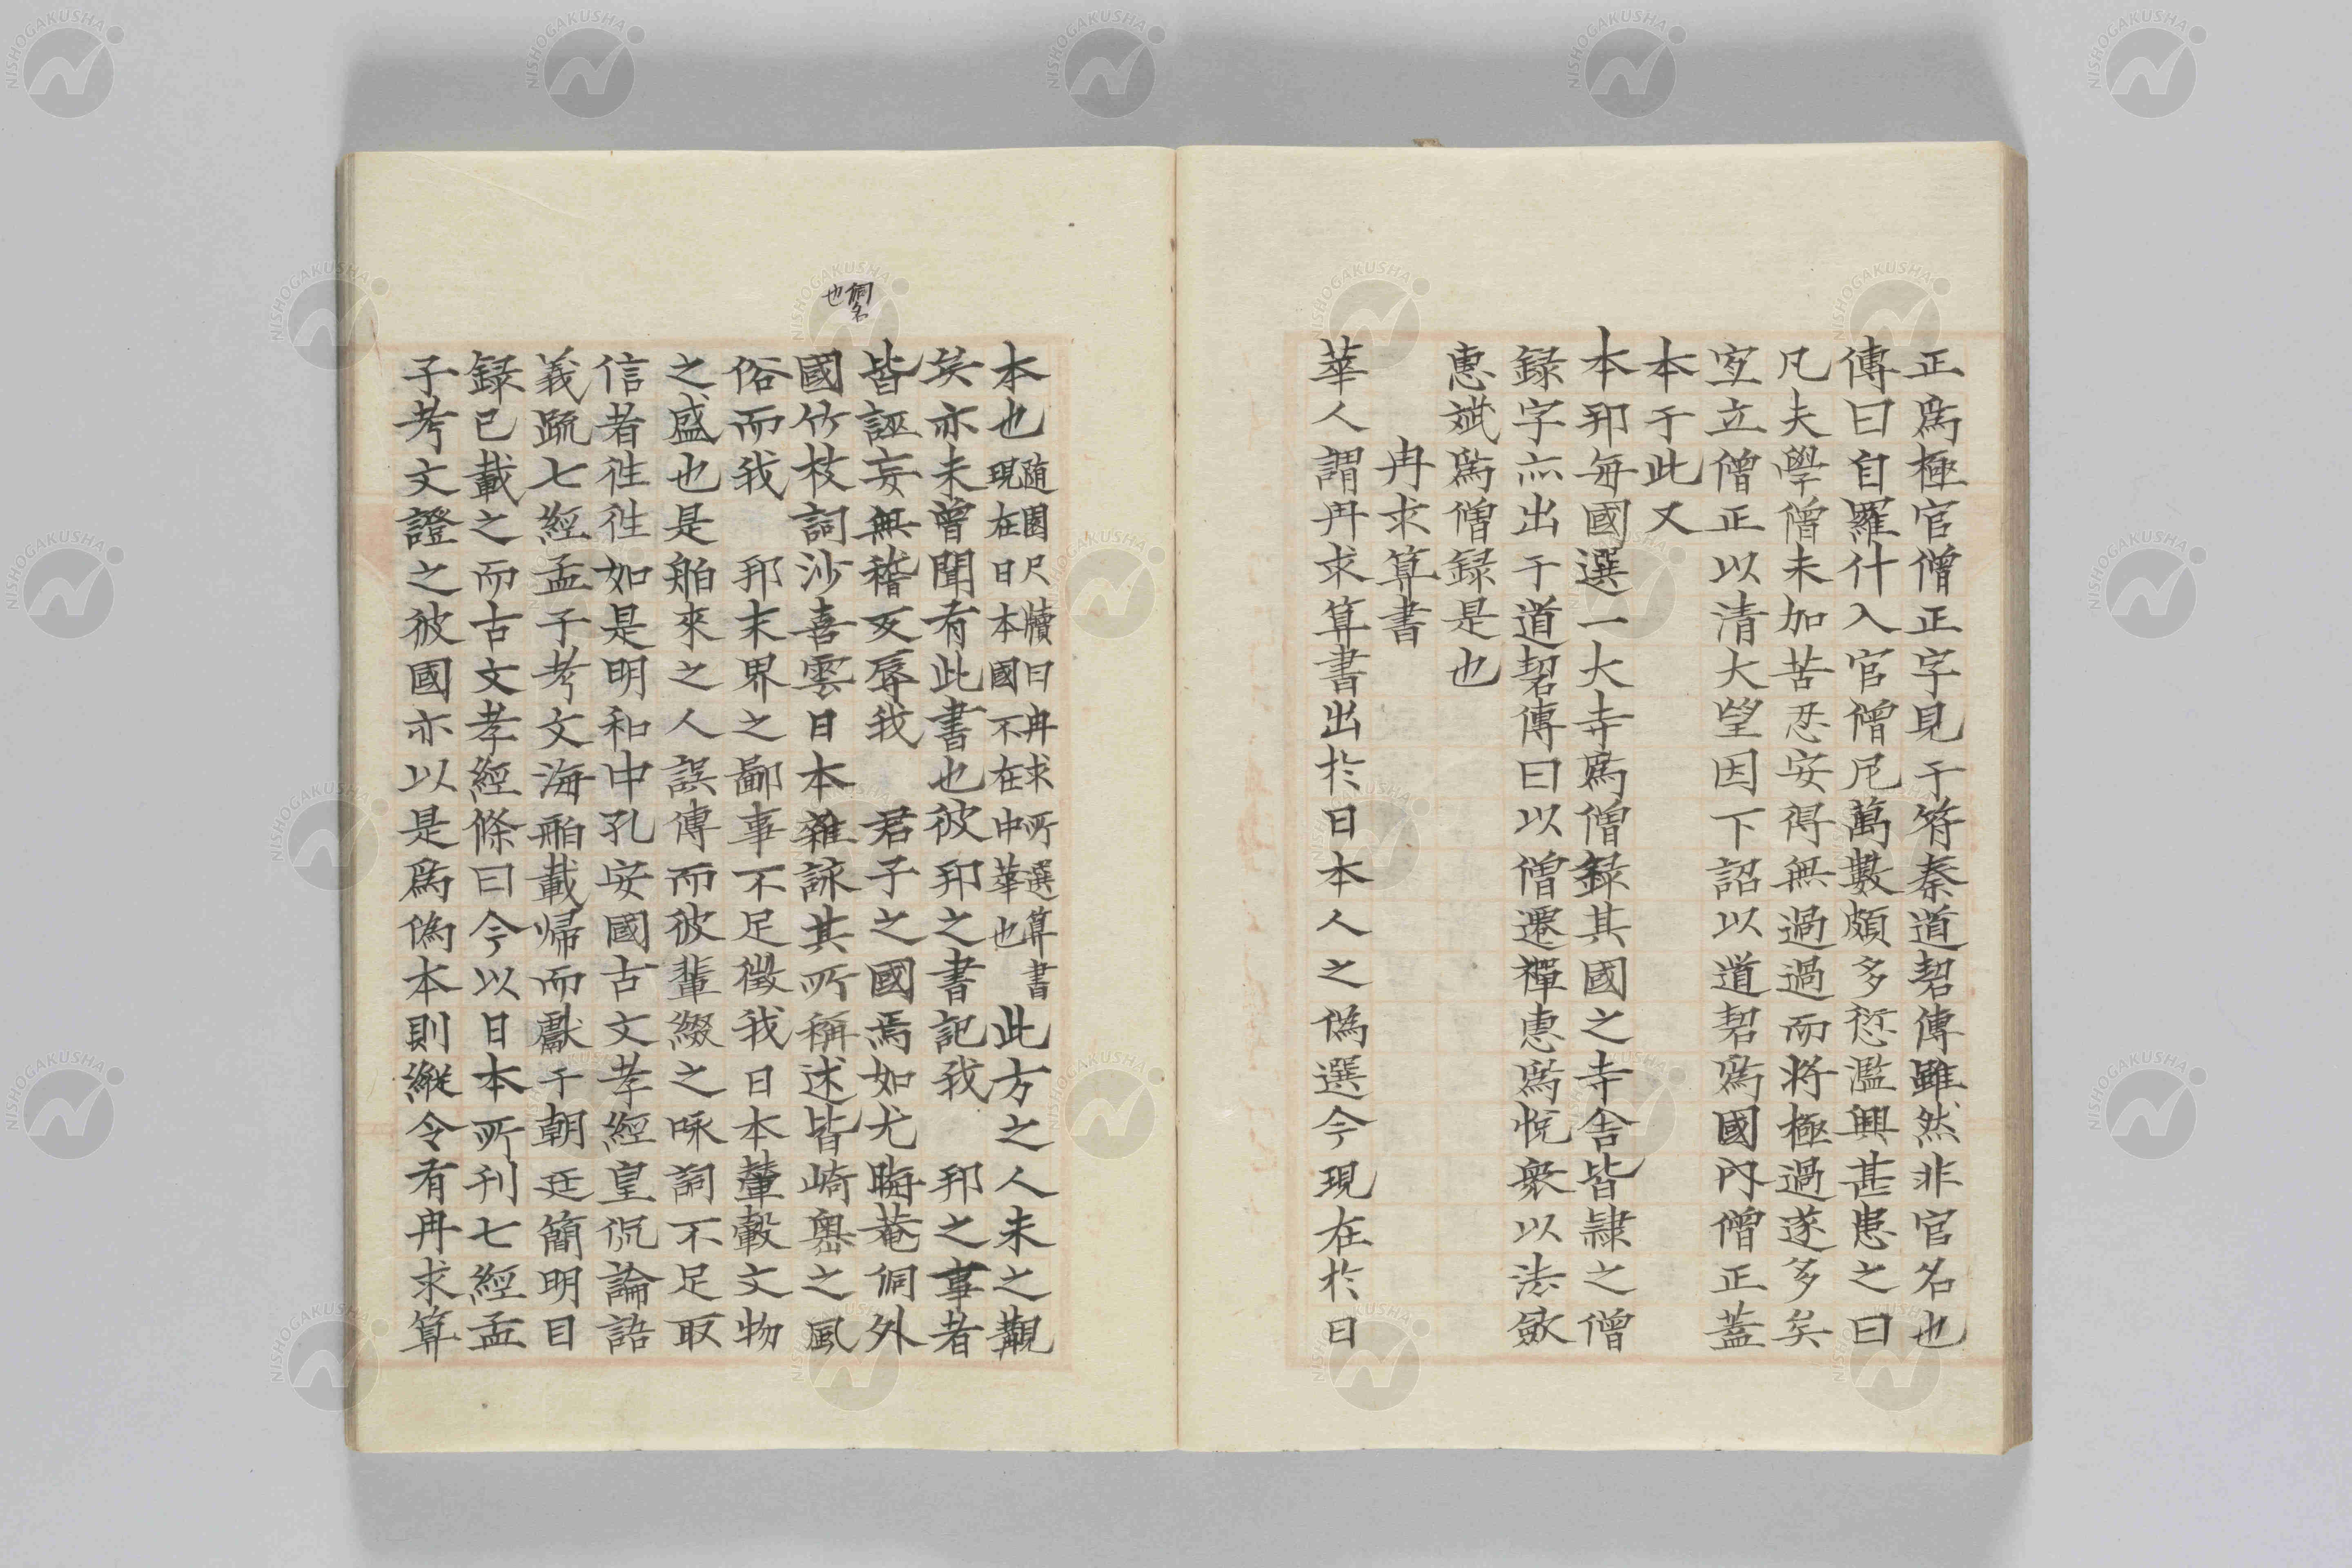 正爲極官僧正字見于符秦道䂮傳雖然非官名也
傳曰自羅什入官僧尼萬數頗多愆濫興甚患之曰
凡夫學僧未加苦忍安得無過過而將極過遂多矣
宜立僧正以清大望因下詔以道䂮爲國內僧正蓋
本于此又
本邦每國選一大寺爲僧録其國之寺舍皆隷之僧
録字亦出于道䂮傳曰以僧遷禪惠爲悅衆以法欽
惠斌爲僧録是也
冉求算書
華人謂冉求算書出於日本人之偽選今現在於日
本也随園尺牘曰冉求所選算書現在日本國不在中華也此方之人未之觀
矣亦未曾聞有此書也彼邦之書記我 邦之事者
皆誣妄無稽及辱我 君子之國焉如尤晦菴侗外
國竹枝詞沙喜雲日本雜詠其所稱述皆崎奧之風
俗而我 邦末界之鄙事不足徵我日本輦轂文物
之盛也是舶來之人誤傳而彼輩綴之咏詞不足取
信者徃徃如是明和中孔安國古文孝經皇侃論語
義疏七經孟子考文海舶載帰而獻于朝廷簡明目
録已載之而古文孝經條曰今以日本所刊七經孟
子考文證之彼國亦以是爲偽本則縱令有冉求算
侗名
也
NISHOGAKUSHA